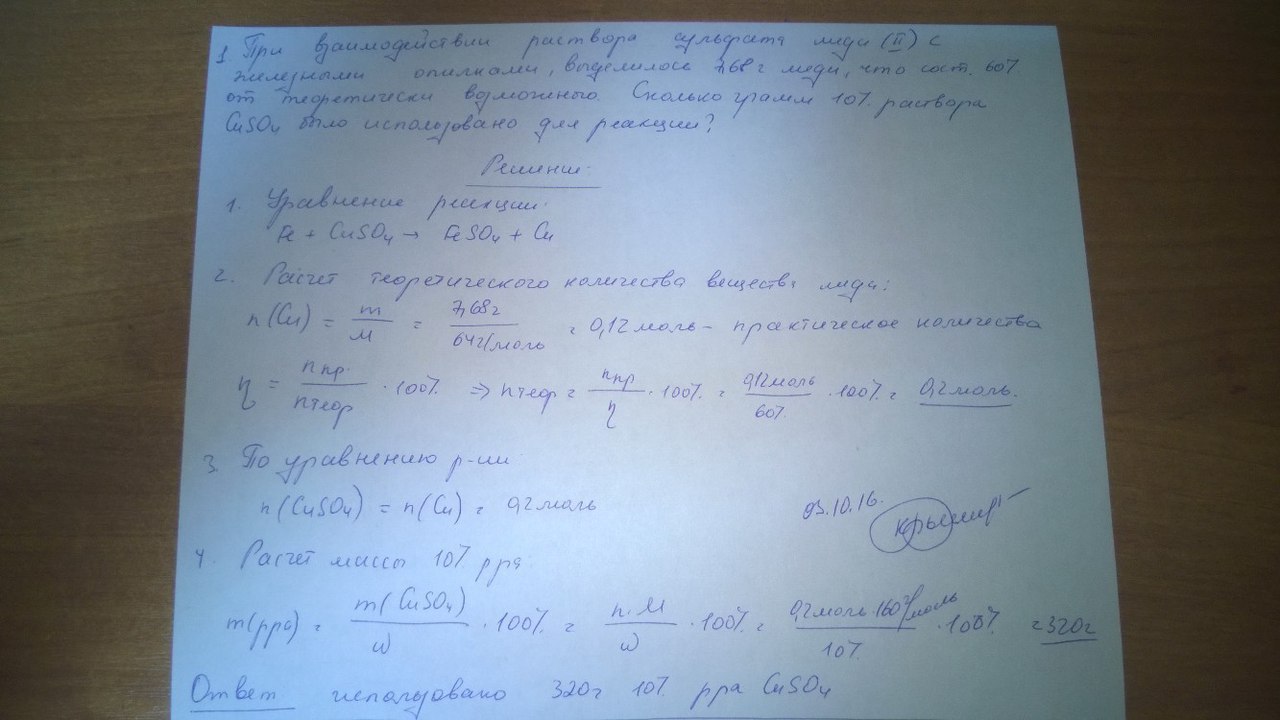 1 При взаимодействии раствора сульфата меди (II) с
железными опилками, выделилось 7,68 г меди, что сост. 60%
от теоретически возможного. Сколько грамм 10% раствора
CuSO4 было использовано для реакции?
Решение.
1. Уравнение реакции:
Fe + CuSO4 → FeSO4 + Cu
2. Расчет теоретического количества вещества меди:
n(Cu) = m/M = 7,68г/64г/моль = 0,12 моль - практическое количества
η = nпр./nтеор · 100% => nтеор = nпр/η · 100% = 0,12моль/60% · 100% = 0,2 моль.
3. По уравнению р-ии
n(CuSO4) = n(Cu) = 0,2 моль
03.10.16.
4. Расчет массы 10% рра
m(рра) = m(CuSO4)/ω · 100% = n·M/ω · 100% = 0,2моль·160г/моль/10% · 100% = 320г
Ответ: использовано 320г 10% рра CuSO4